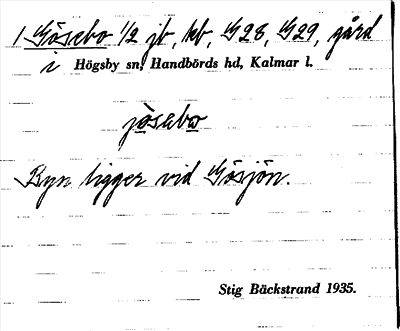 1 Gösebo 1/2 jb, kb, G28, G29, gård
i Högsby sn, Handbörds hd, Kalmar l.
jösebo
Byn ligger vid Gösjön.
Stig Bäckstrand 1935.